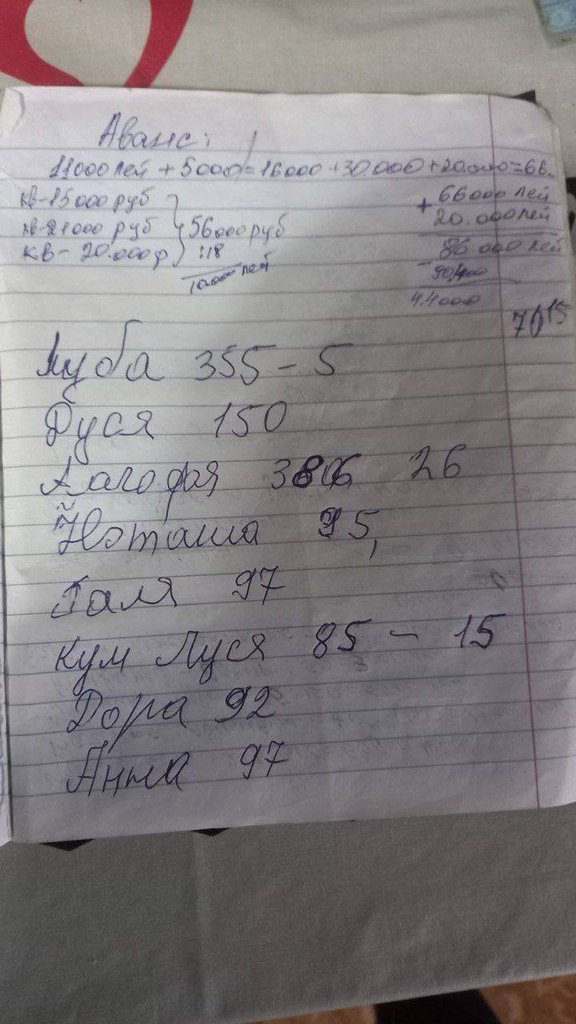 Аванс:
11000 лей + 5000 = 16000 + 30.000 + 20.000 = 66
кв - 15000 руб
кв - 21000 руб
56000 руб
кв - 20.000 р
:18
+ 66000 лей
20.000 лей
86 000 лей
44000
7015
Луба 355 - 5
Дуся 150
26
Наташа 95,
Галя 97
Кум Луся 85 - 15
Дора 92
Анна 97